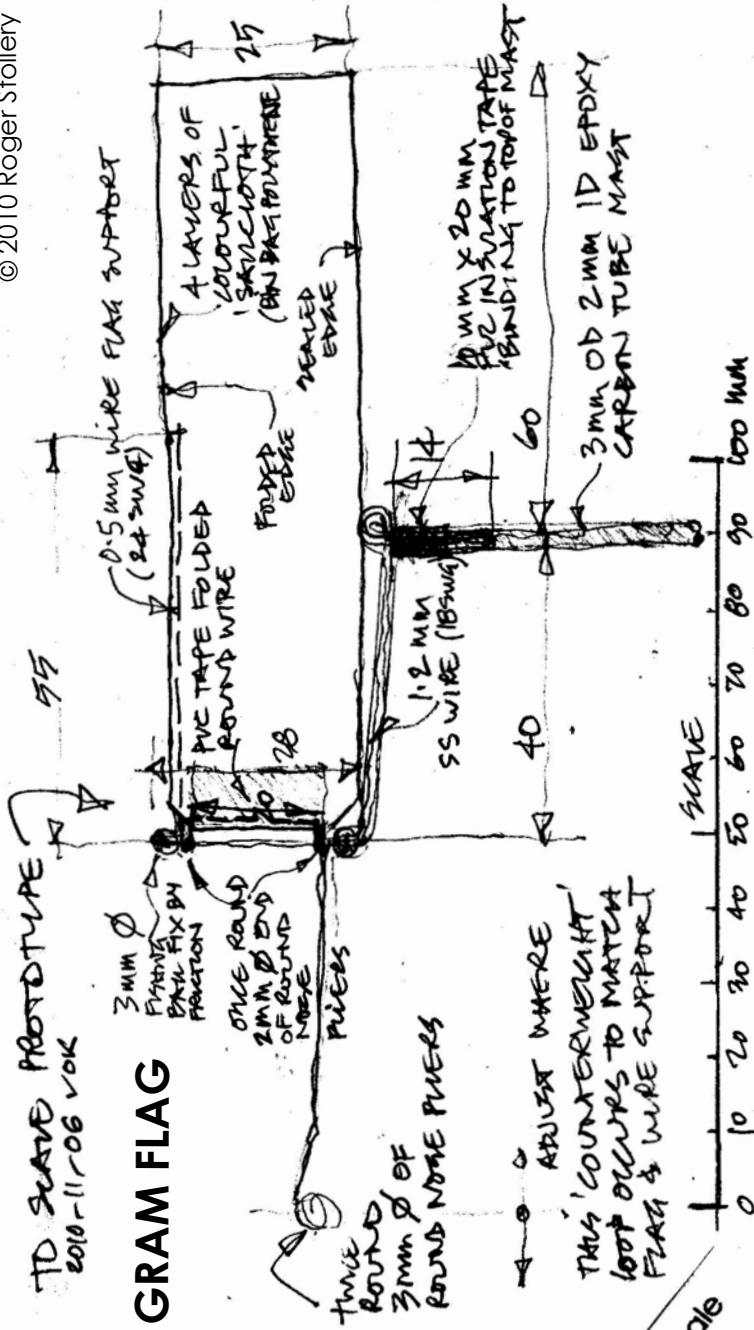 © 2010 Roger Stollery
TO SCALE PROTOTYPE
2010-11-06 VOK
GRAM FLAG
55
25
0.5mm WIRE FLAG SUPPORT
(24 SWG)
4 LAYERS OF
COLOURFUL
'SAILCLOTH'
(BIN BAG POLYTHENE
FOLDED
EDGE
SEALED
EDGE
3mm Ø
FISHING
BALL FIX BY
FRICTION
PVC TAPE FOLDED
ROUND WIRE
28
ONCE ROUND
2mm Ø END
OF ROUND
NOSE
PLIERS
TWICE
ROUND
3mm Ø OF
ROUND NOSE PLIERS
1.2 MM
SS WIRE (18SWG)
14
10 mm X 20 MM
PVC INSULATION TAPE
BINDING TO TOP OF MAST
40
60
3mm OD 2mm ID EPOXY
CARBON TUBE MAST
ADJUST WHERE
THIS 'COUNTERWEIGHT'
LOOP OCCURS TO MATCH
FLAG & WIRE SUPPORT
SCALE
0 10 20 30 40 50 60 70 80 90 100 mm